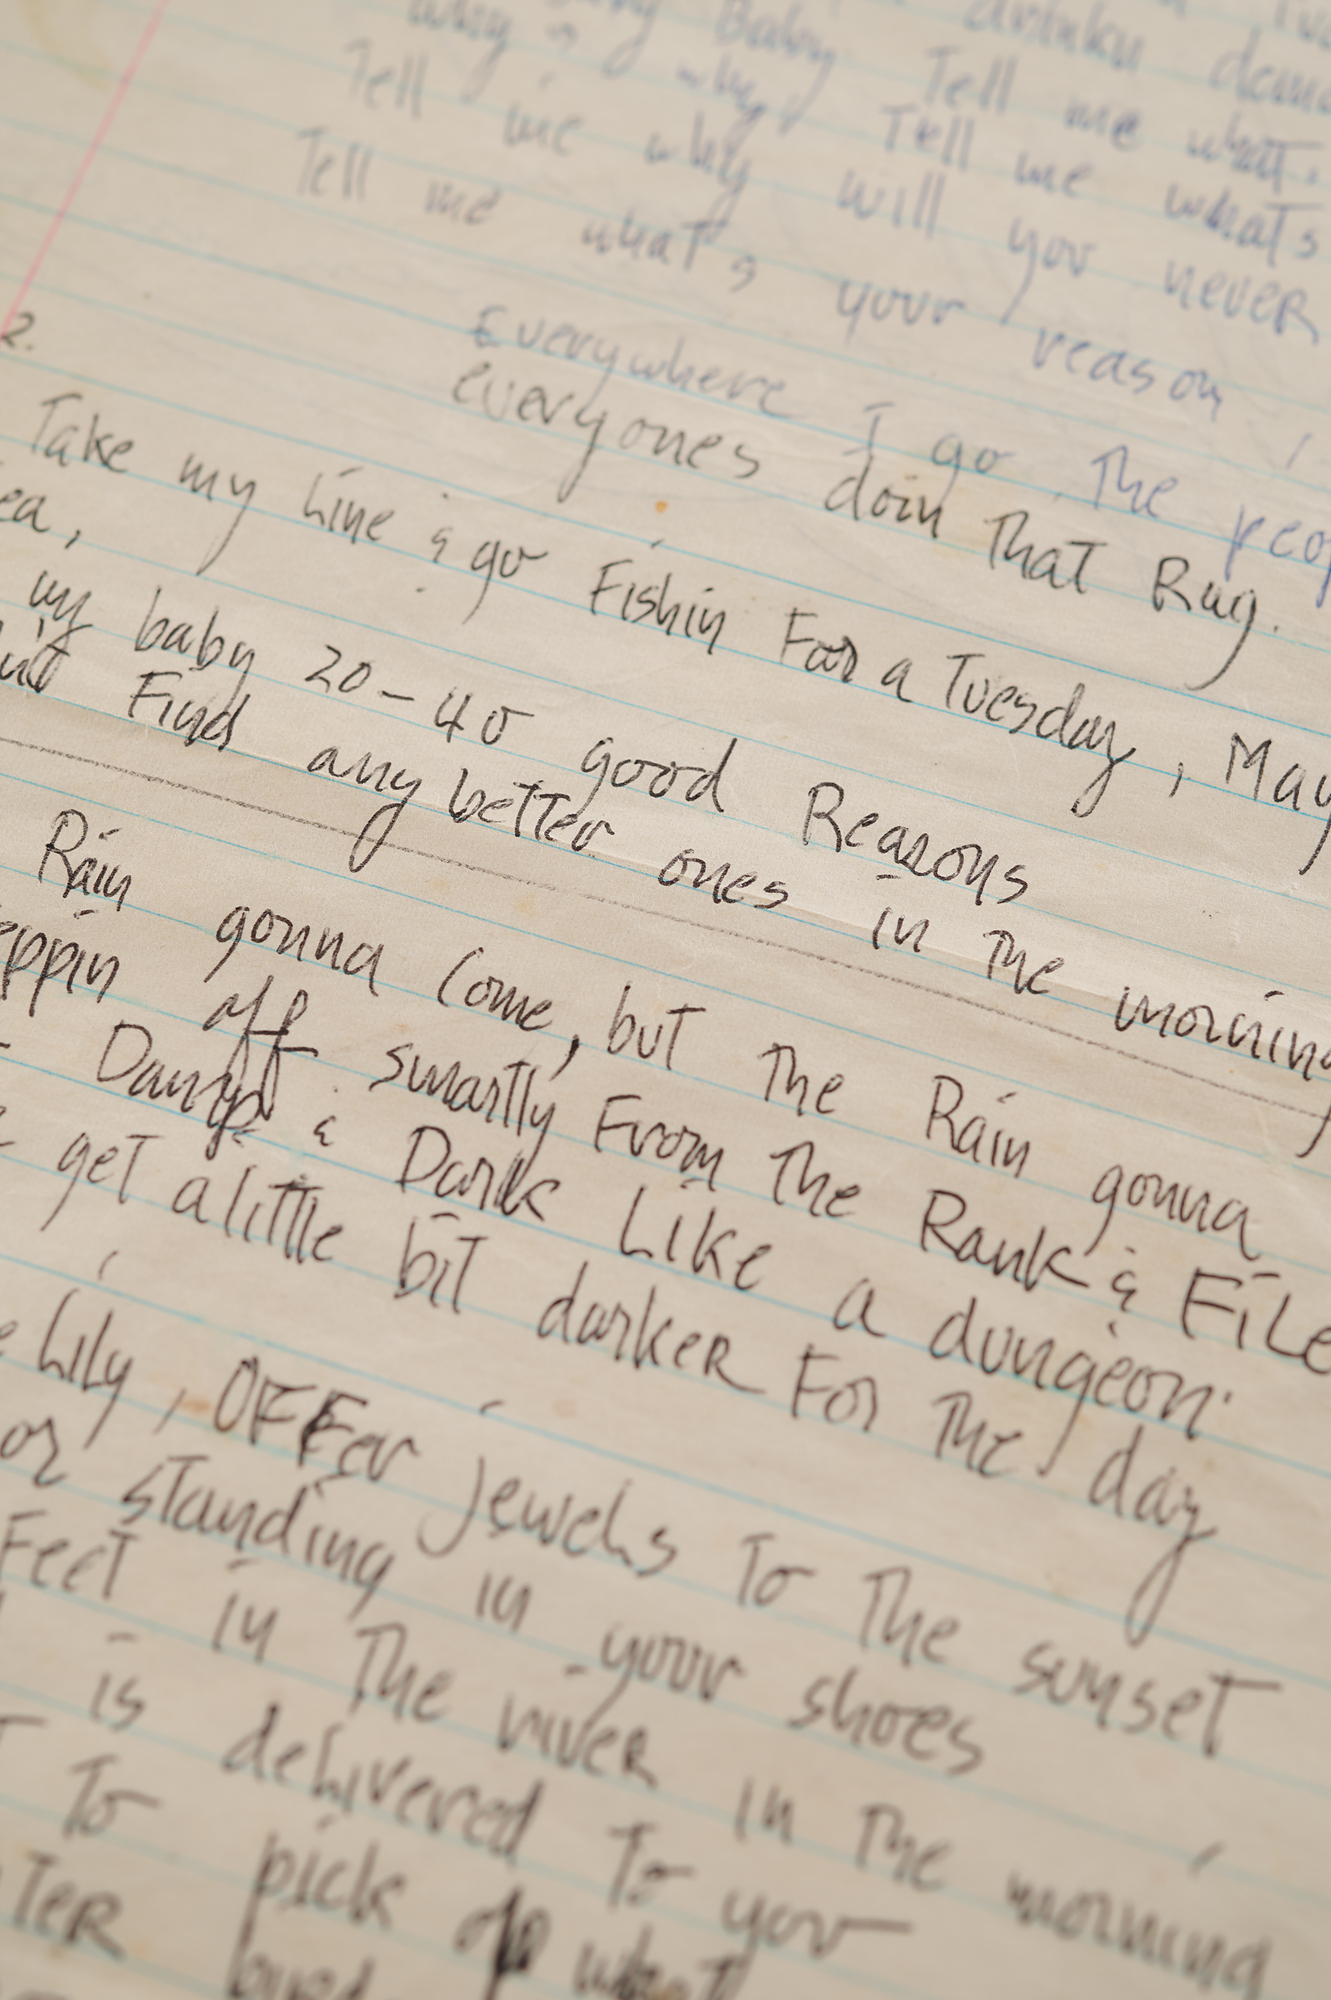 Baby Tell me what.
why, why, Tell me whats
Tell me why will you never
Tell me what's your reason
Everywhere I go the peop
everyones doin that Rag.
2.
Take my line & go Fishin For a Tuesday, May
ea,
my baby 20-40 good Reasons
Find any better ones in the morning
Rain gonna come, but the Rain gonna
eppin off smartly From the Rank & File
Damp & Dark Like a dungeon.
get a little bit darker For the day
Lily, OFFer jewels to the sunset
or standing in your shoes
Feet in the river in the morning
is delivered to you
To pick up what